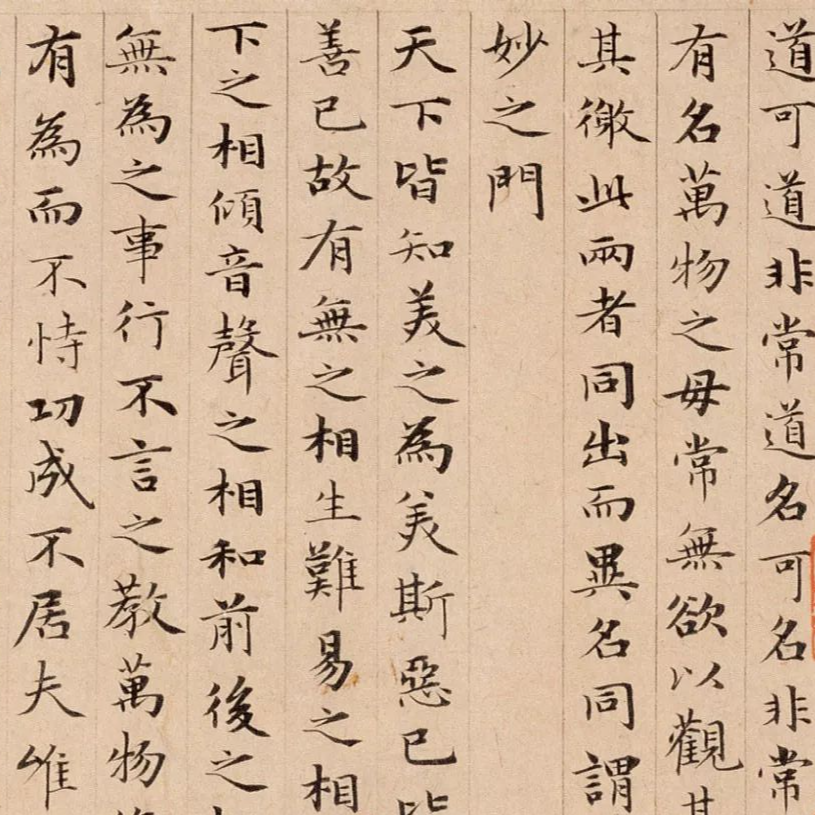 道可道非常道名可名非常
有名萬物之母常無欲以觀其
其徼此兩者同出而異名同謂
妙之門
天下皆知美之為美斯惡已皆
善已故有無之相生難易之相
下之相傾音聲之相和前後之
無為之事行不言之教萬物
有為而不恃功成不居夫唯